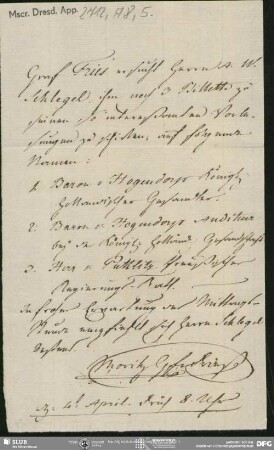 Mscr. Dresd. App. 2712, A8, 5.
Graf Fries ersucht Herrn A. W.
Schlegel ihm noch 3 Billette zu
seinen so interessanten Vorle-
sungen zu schicken, auf folgende
Namen:
1. Baron v Hogendorp Königl
Holländischer Gesandter.
2. Baron v. Hogendorp Auditeur
bey der Königl Holländ. Gesandtschaft
3. Herr v. Puttlitz Preußischer
Regierungs-Rath.
In froher Erwartung der Mittags-
stunde empfiehlt sich Herrn Schlegel
bestens
Moritz GfvFries
d. 4t April. Früh 8 Uhr
SLUB
DFG